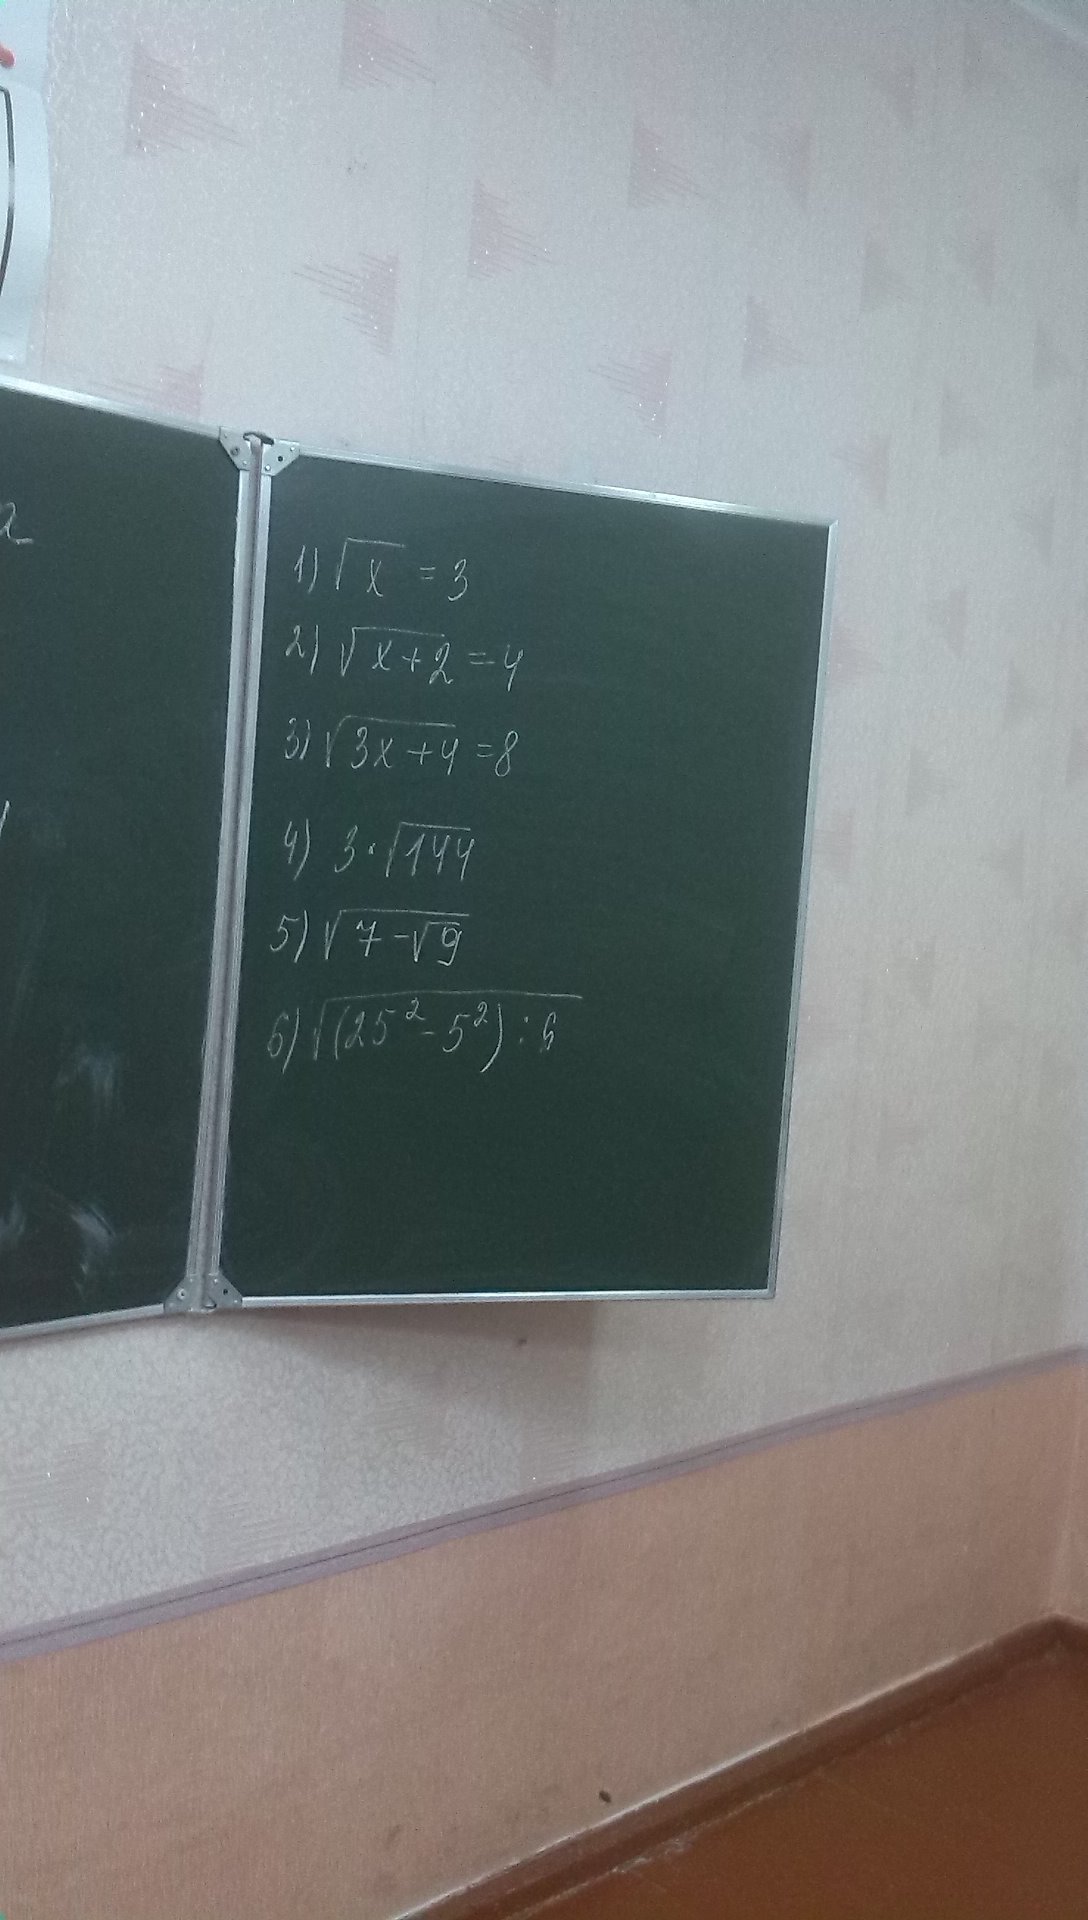 1) √x = 3
2) √(x+2) = 4
3) √(3x+4) = 8
4) 3·√144
5) √(7-√9)
6) √((25²-5²):6)